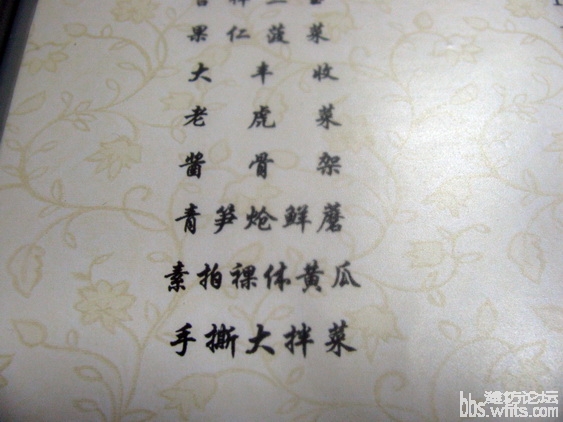 果仁菠菜
大丰收
老虎菜
酱骨架
青笋炝鲜蘑
素拍裸体黄瓜
手撕大拌菜
潍坊论坛
bbs.wfits.com